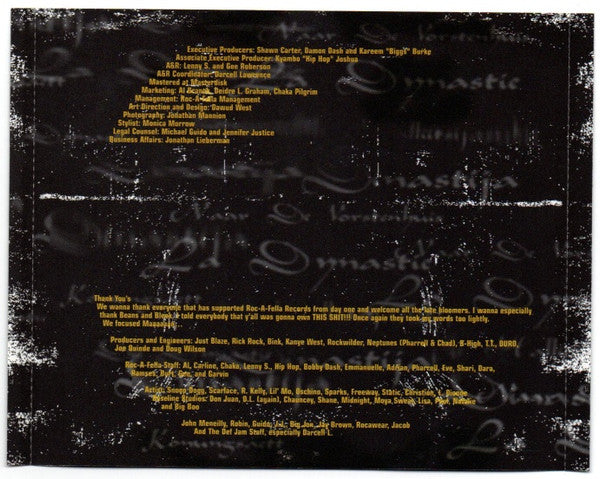 Executive Producers: Shawn Carter, Damon Dash and Kareem "Biggs" Burke
Associate Executive Producer: Kyambo "Hip Hop" Joshua
A&R: Lenny S. and Gee Roberson
A&R Coordinator: Darcell Lawrence
Mastered at Masterdisk
Marketing: Al Branch, Deidre L. Graham, Chaka Pilgrim
Management: Roc-A-Fella Management
Art Direction and Design: Dawud West
Photography: Jonathan Mannion
Stylist: Monica Morrow
Legal Counsel: Michael Guido and Jennifer Justice
Business Affairs: Jonathan Lieberman
Naar De Vorstenhuis
La Dynastie
Dynastija
Naar De Vorstenhuis
La Dynastie
Thank You's
We wanna thank everyone that has supported Roc-A-Fella Records from day one and welcome all the late bloomers. I wanna especially
thank Beans and Bleek. I told everybody that y'all was gonna own THIS SHIT!!! Once again they took my words too lightly.
We focused
Producers and Engineers: Just Blaze, Rick Rock, Bink, Kanye West, Rockwilder, Neptunes (Pharrell & Chad), B-High, T.T., DURO,
Joe Quinde and Doug Wilson
Roc-A-Fella-Staff: Al, Carline, Chaka, Lenny S., Hip Hop, Bobby Dash, Emmanuelle, Adrian, Pharcell, Eve, Shari, Dara,
Ramses, Gee, and Garvin
Artist: Snoop Dogg, Scarface, R. Kelly, Lil' Mo, Oschino, Sparks, Freeway, Static, Christion,
Baseline Studios: Don Juan, D.L. (again), Chauncey, Shane, Midnight, Moya, Sweat, Lisa,
and Big Boo
John Meneilly, Robin, Guido, Big Jon, Jay Brown, Rocawear, Jacob
And The Def Jam Stuff, especially Darcell L.